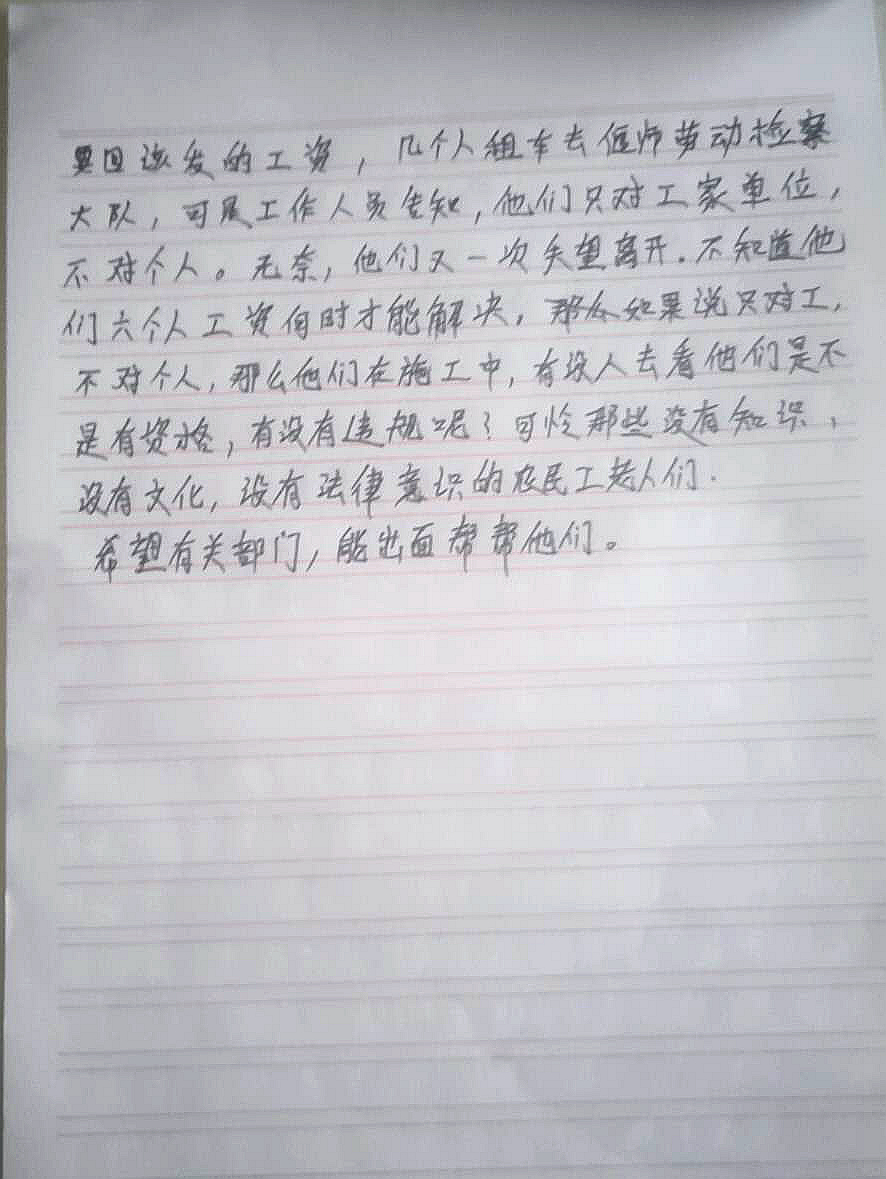 要回该发的工资，几个人租车去偃师劳动检察
大队，可是工作人员告知，他们只对工家单位，
不对个人。无奈，他们又一次失望离开．不知道他
们六个人工资何时才能解决，那么如果说只对工，
不对个人，那么他们在施工中，有没人去看他们是不
是有资格，有没有违规呢？可怜那些没有知识，
没有文化，没有法律意识的农民工老人们．
希望有关部门，能出面帮帮他们。